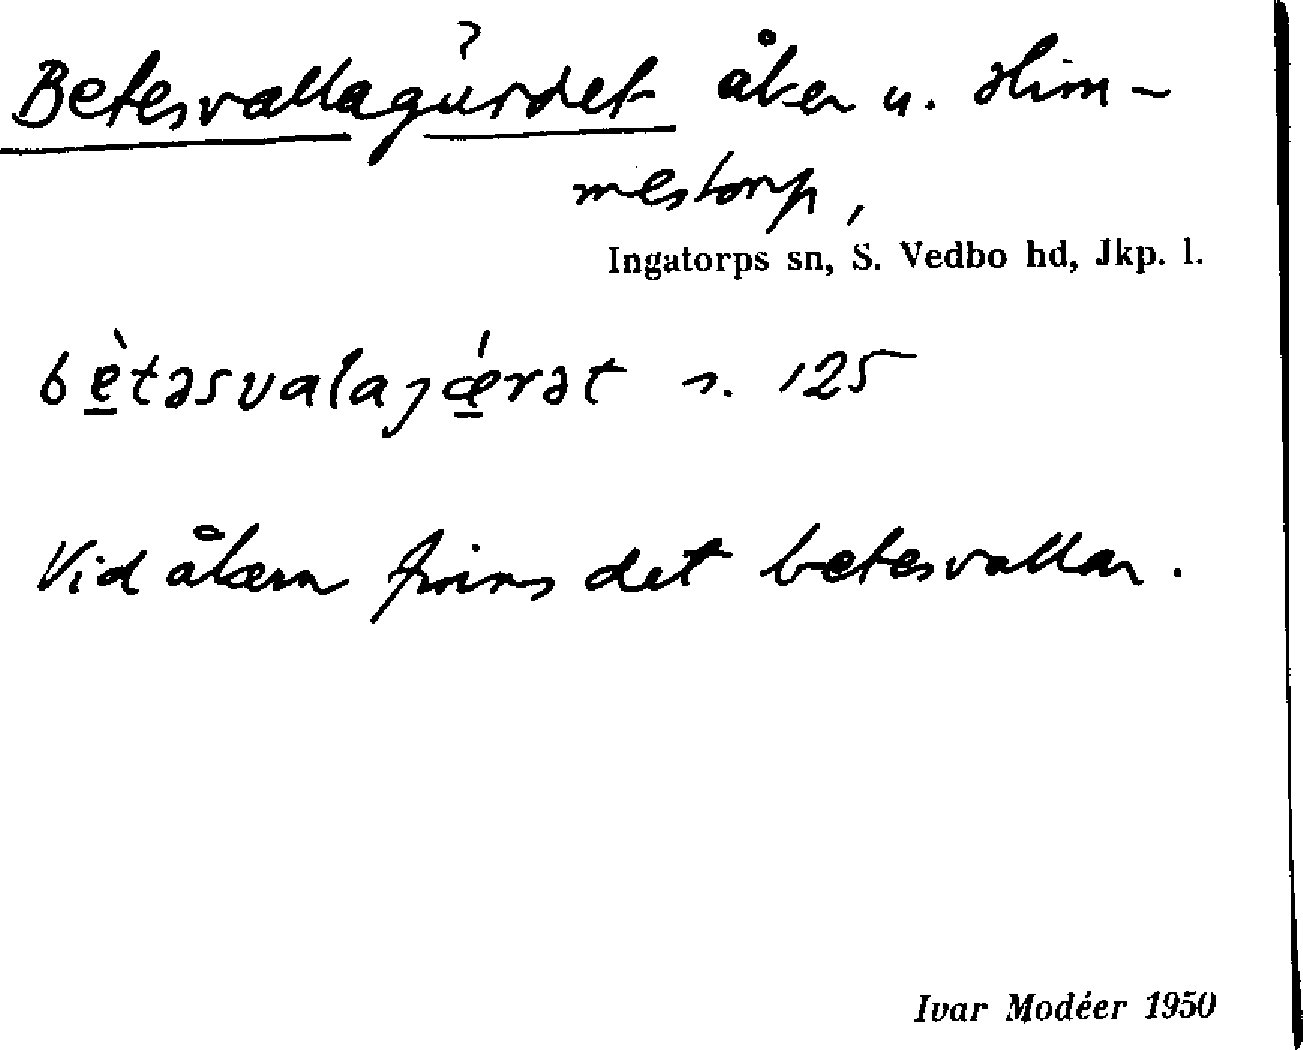 ?
Betesvallagärdet åker u. Him-
mestorp,
Ingatorps sn, S. Vedbo hd, Jkp. l.
bètəsvalajǽrət s. 125
Vid åkern finns det betesvallar.
Ivar Modéer 1950